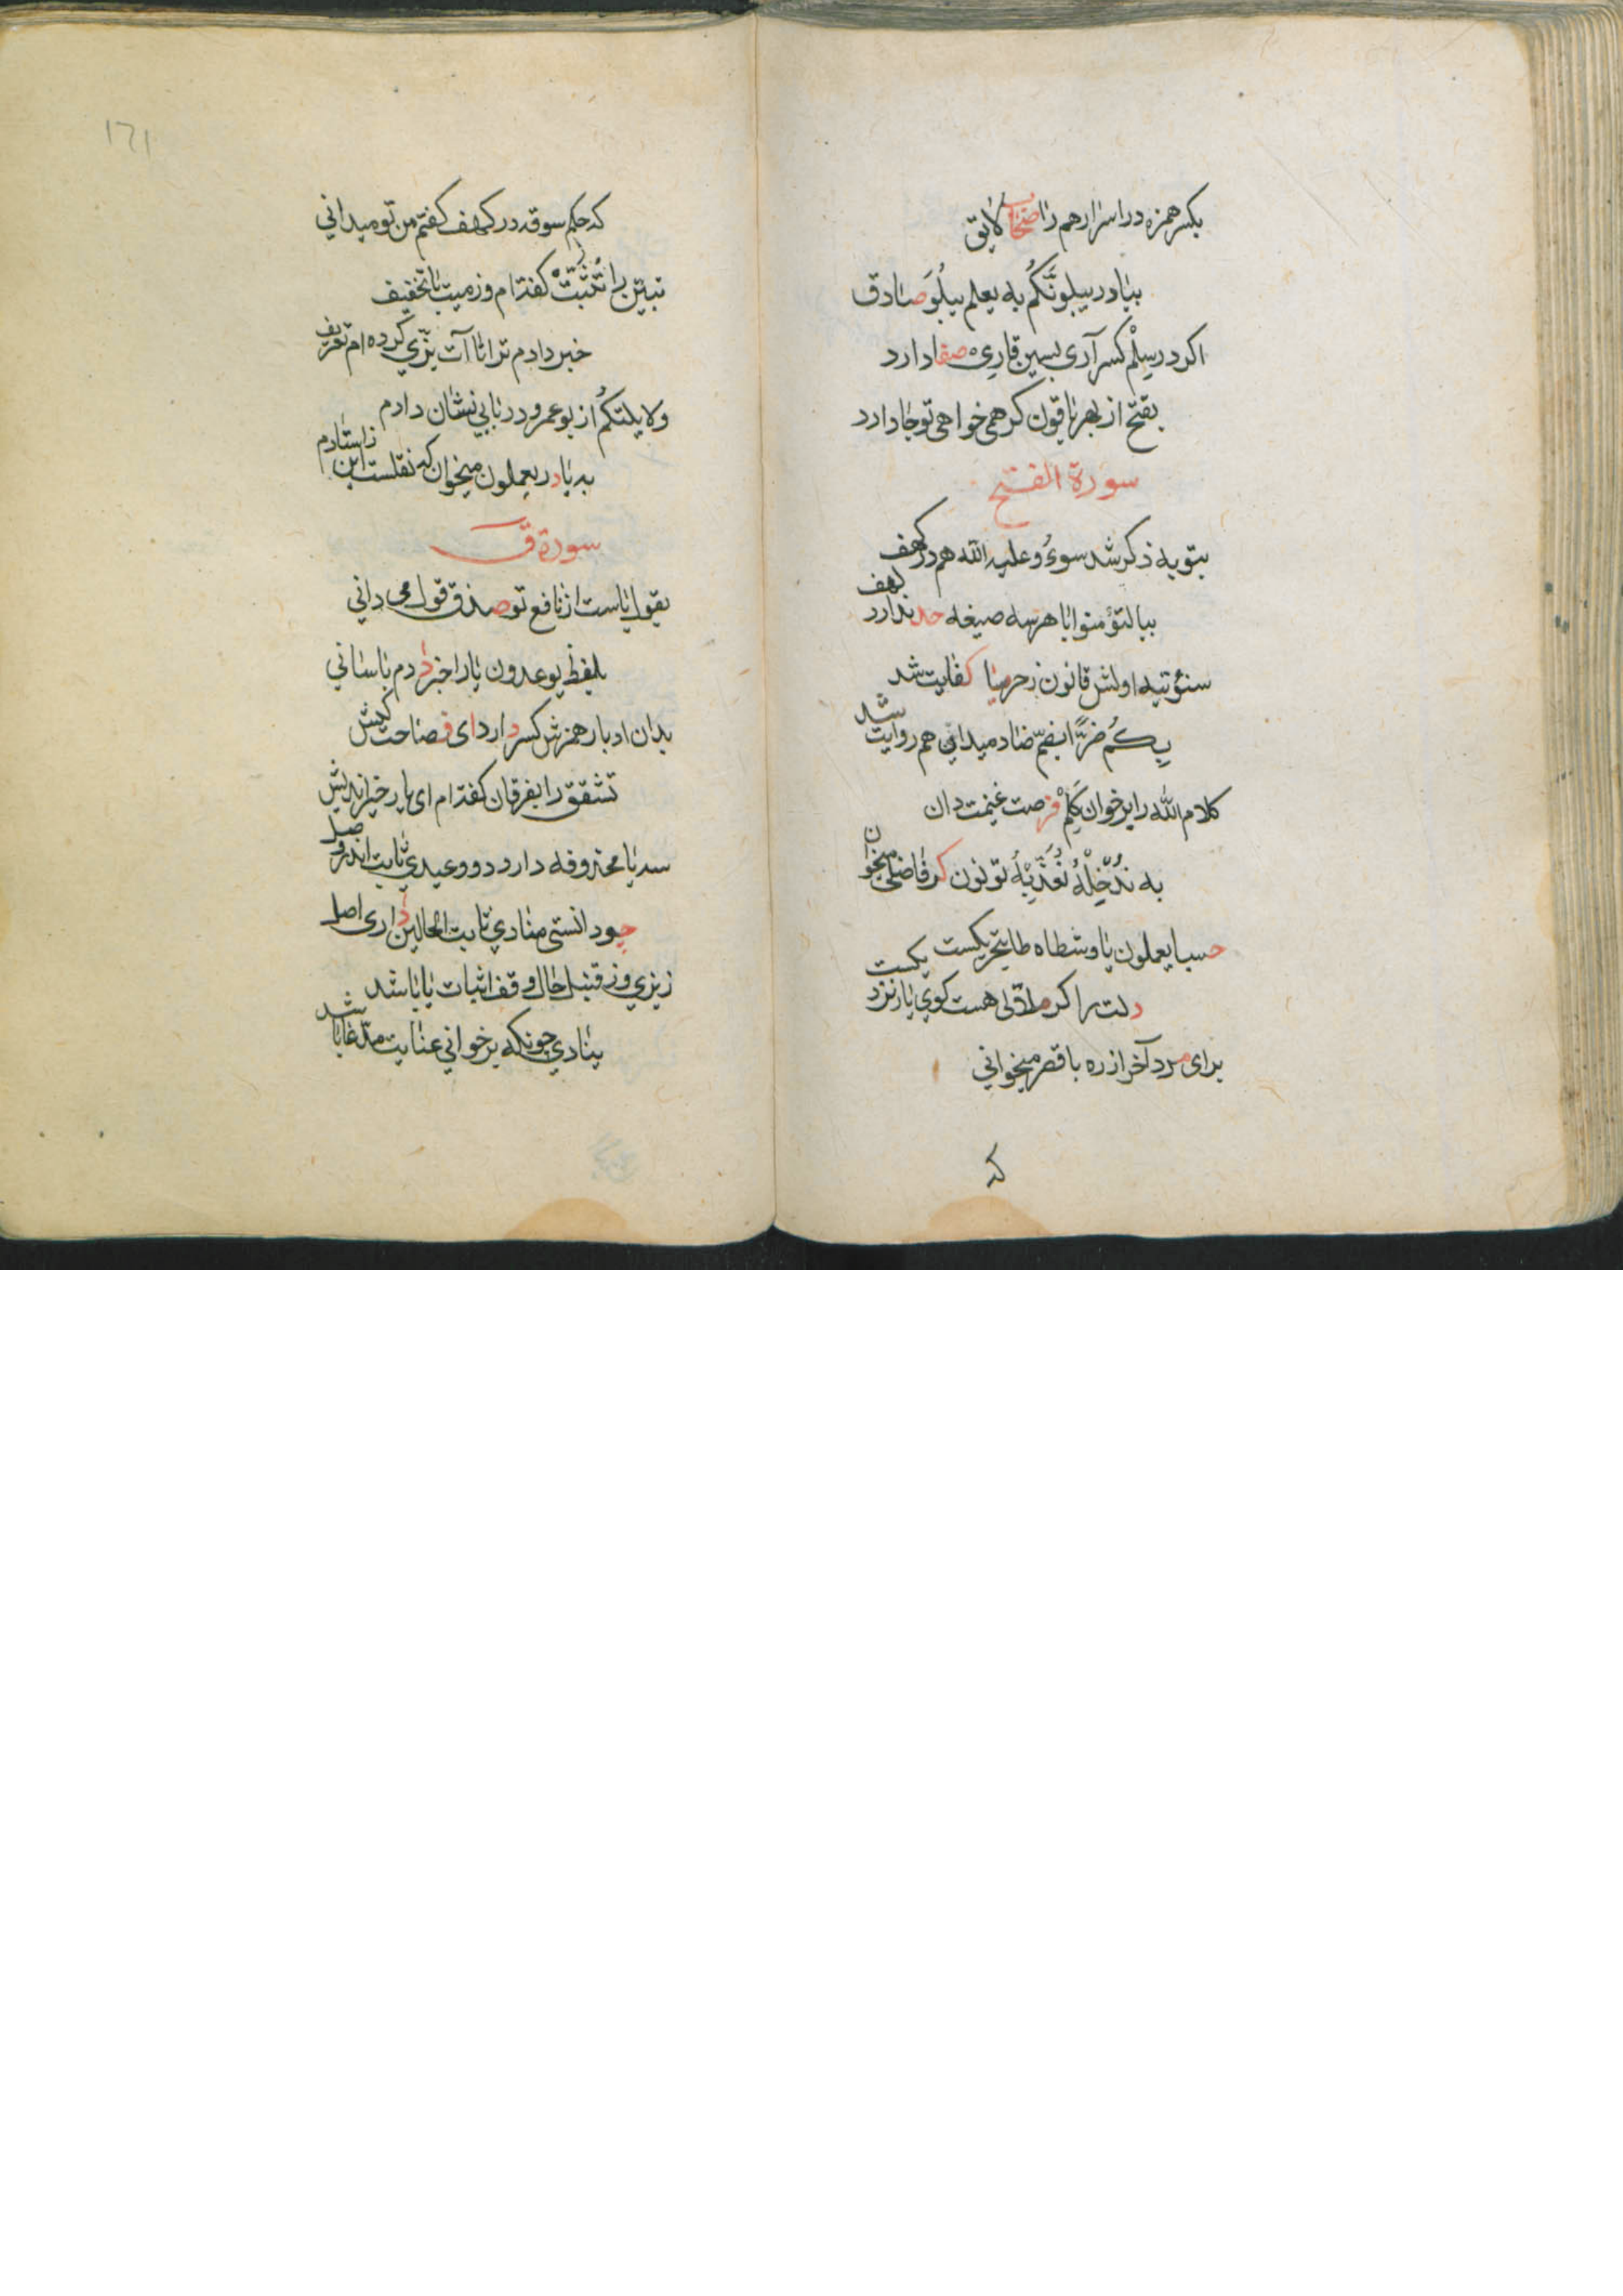 بکسر همزه در اسرار هم را صحاب لایق
بیا در یبلونکم به یعلم یبلو صادق
اکر در سلم کسر آری بسین قاری صفا دارد
بفتح از بهر باقون کر همی خواهی تو جا دارد
سورة الفتح
بتوبه ذکر شد سوء و علیه الله هم در کهف
بیا لتؤمنوا با هر سه صیغه حد ندارد کهف
سنؤتیه اولش قانون ز حرمیا کفایت شد
بکم ضرا بضم ضاد میدانی هم روایت شد
کلام الله را برخوان کلم فرصت غنیمت دان
به ندخله نعذبه تو نون کر فاضلی میخوان
حسبا یعملون یا و شطاه طا بتحریکست
دلت را کر ملالی هست کوی یار نزدیکست
برای مرد آخر ازره با قصر میخوانی
که
١٦١
که حکم سوقه در کهف کفتم من تو میدانی
تبین را تثبت کفته ام وز میت با تخفیف
خبر دادم ترا تا آت بزی کرده ام تعریف
ولا یلتکم از بوعمرو در بابی نشان دارم
به یا در یعملون میخوان که نقلست این ز استادم
سورة ق
یقول یاست از نافع تو صدق قول می دانی
بلفظ یوعدون یا را خبر دردم باسانی
بدان ادبار همزش کسر دارد ای فصاحت کیش
تشقق را بفرقان کفته ام ای یار خیر اندیش
سه یا محذوفه دارد دو وعیدی ثابت اندر وصل
جو دانستی منادی ثابت الحالین داری اصل
ز بزی وز قنبل حال وقف اثبات یا باشد
ینادی جونکه برخوانی عنایت مدعا باشد